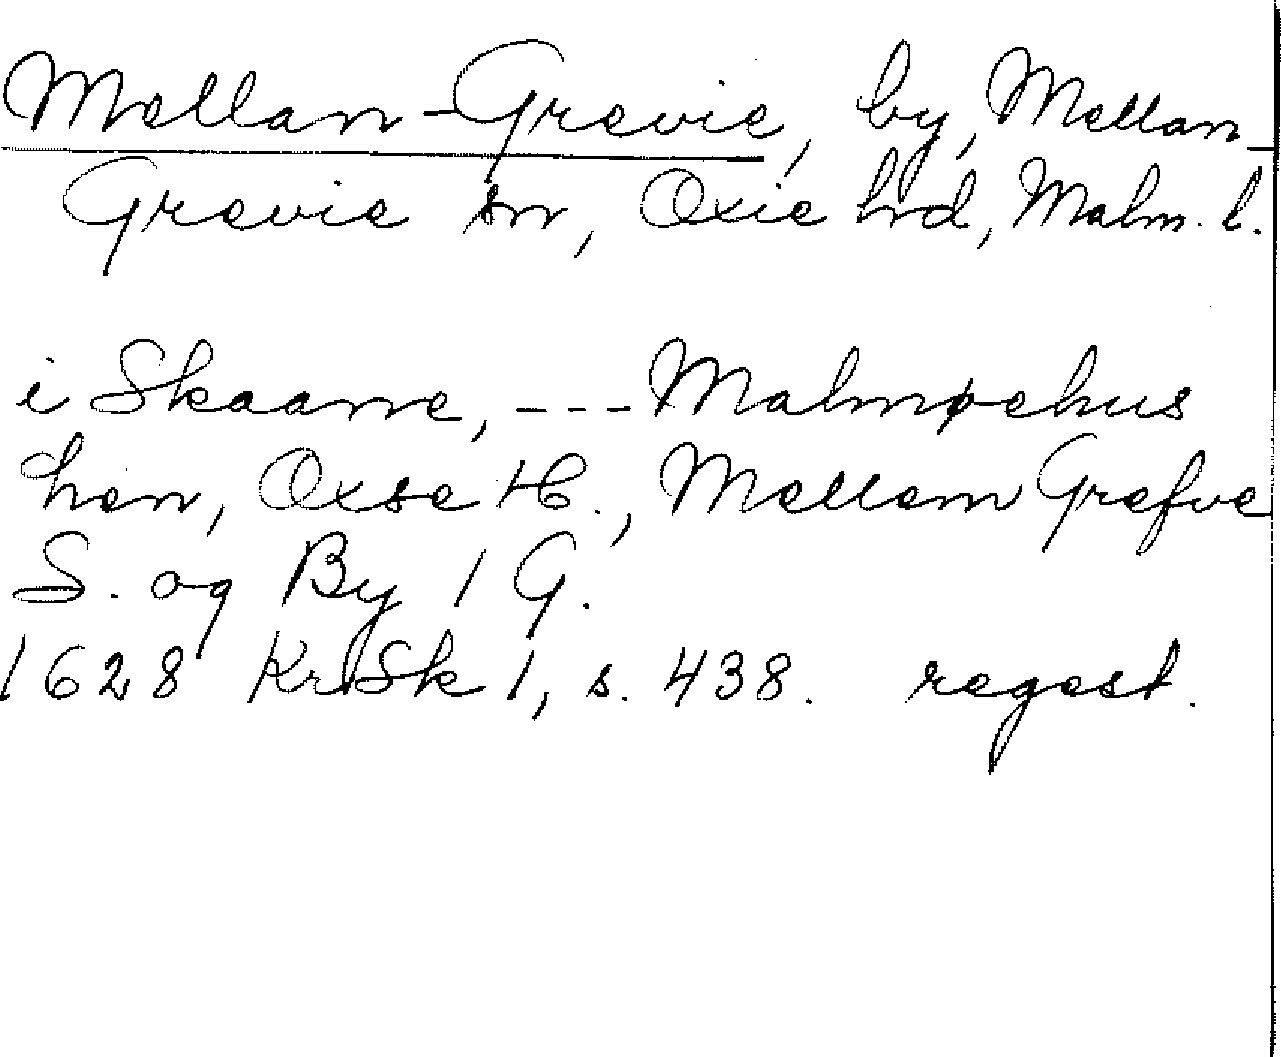 Mellan-Grevie, by, Mellan-
Grevie sn, Oxie hd, Malm. l.
i Skaane, --- Malmøehus
Len, Oxse H., Mellem Grefve
S. og By 1 G.
1628 KrSk 1, s. 438. regest.